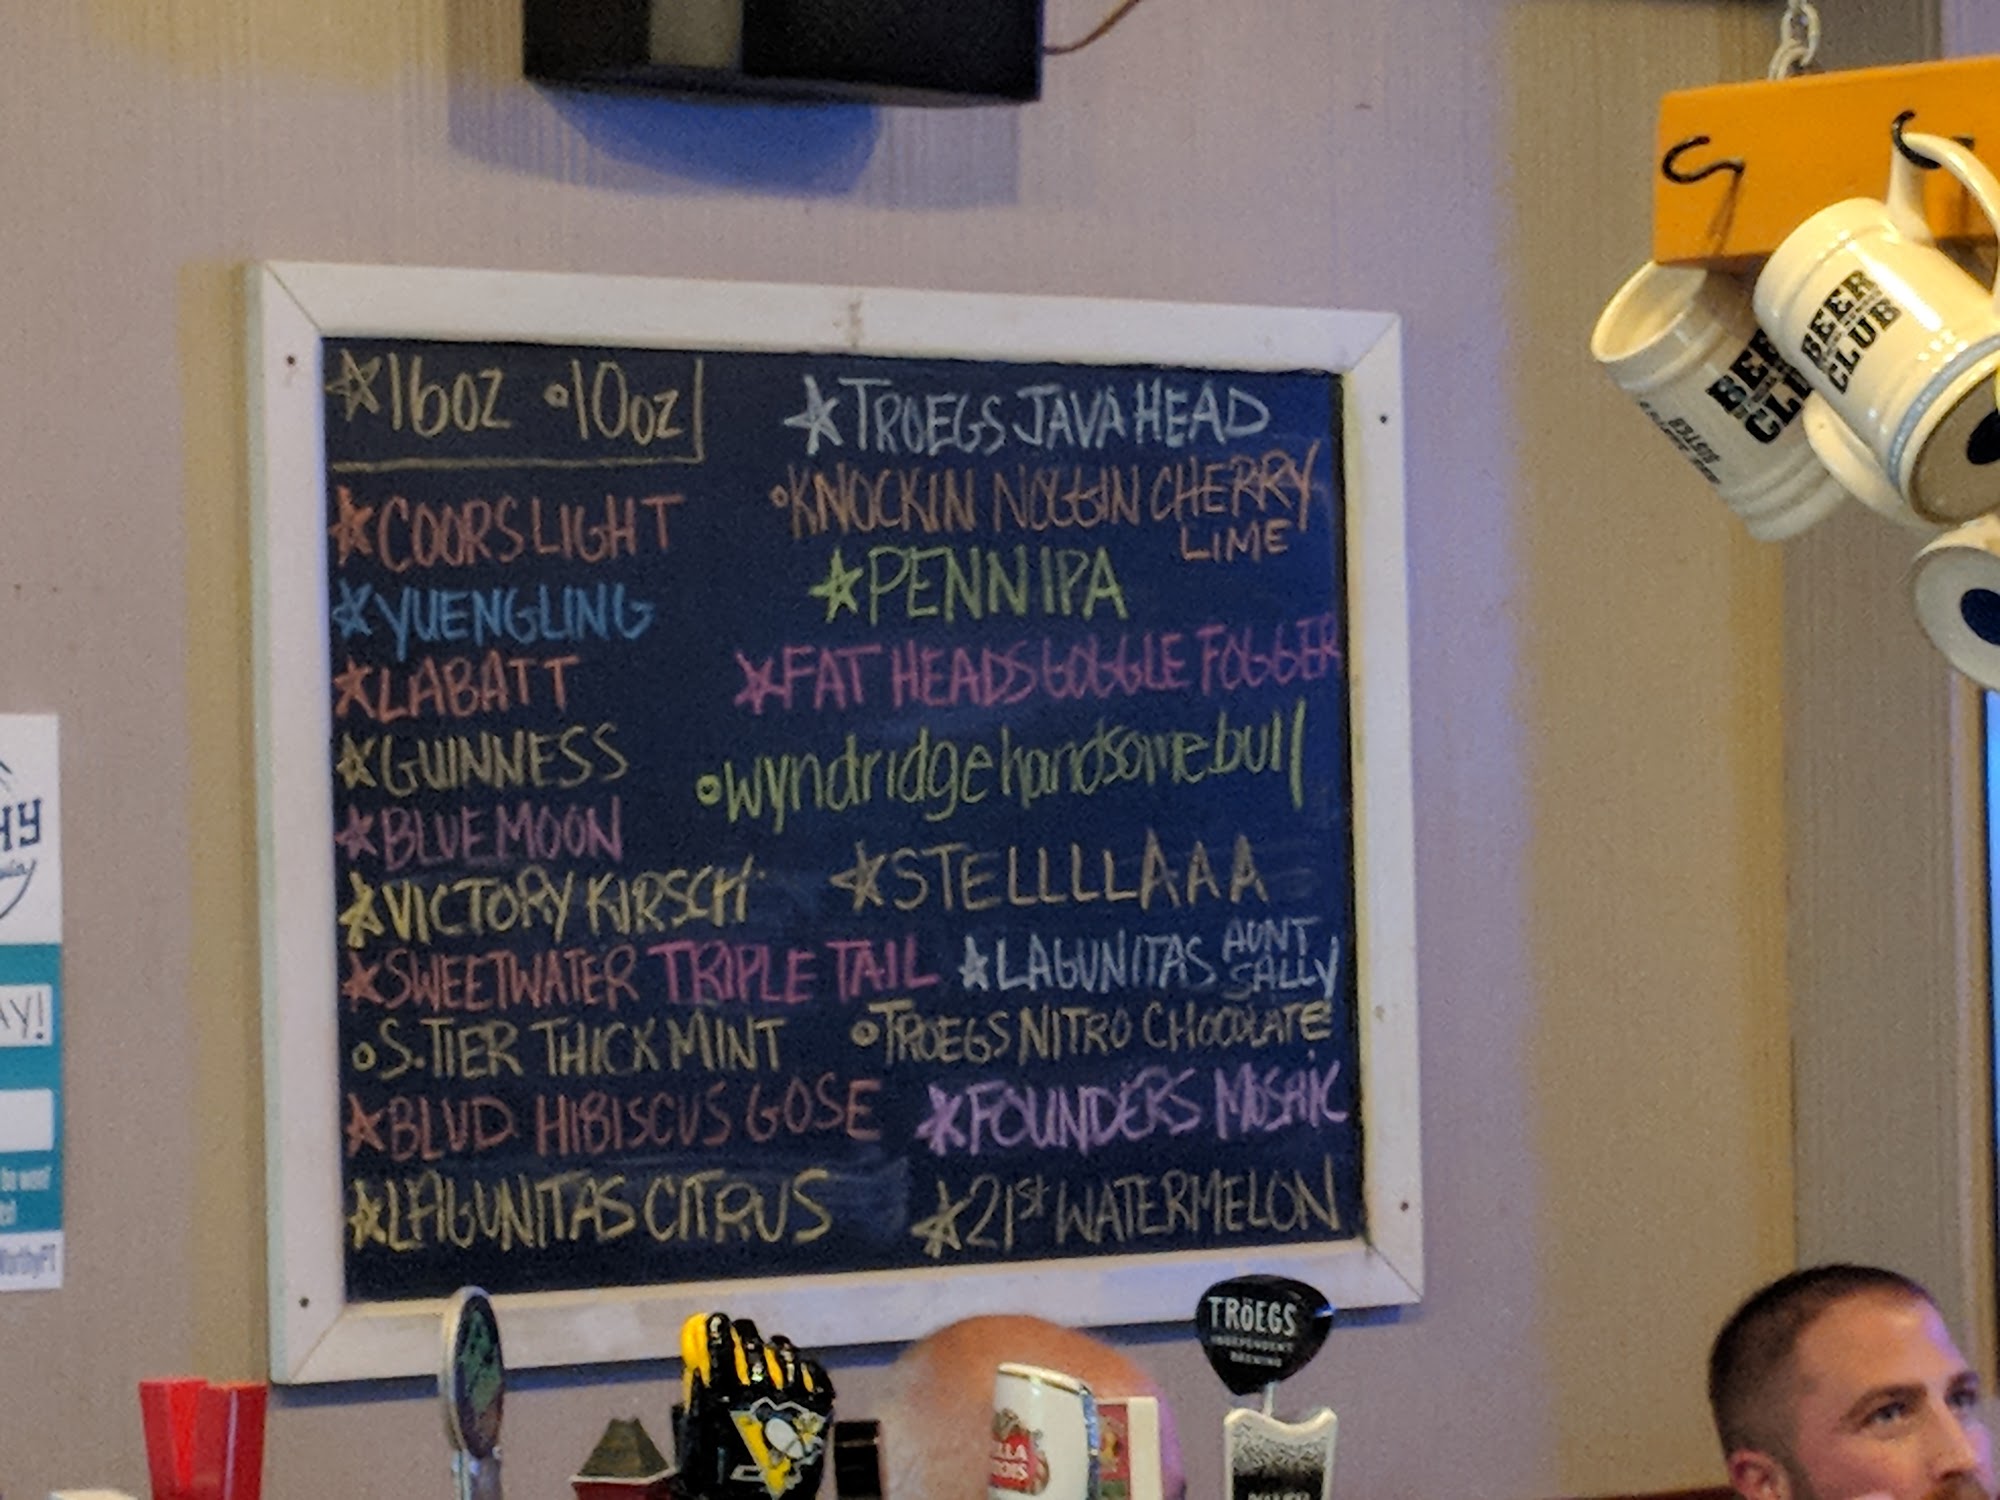 ☆16oz •10oz
☆COORS LIGHT
☆YUENGLING
☆LABATT
☆GUINNESS
☆BLUE MOON
☆VICTORY KIRSCH
☆SWEETWATER TRIPLE TAIL
•S.TIER THICK MINT
☆BLVD HIBISCUS GOSE
☆LAGUNITAS CITRUS
☆TROEGS JAVA HEAD
•KNOCKIN NOGGIN CHERRY
LIME
☆PENN IPA
☆FAT HEADS GOGGLE FOGGER
•wyndridge handsome bull
☆STELLLLAAA
☆LAGUNITAS AUNT
SALLY
•TROEGS NITRO CHOCOLATE
☆FOUNDERS MOSAIC
☆21st WATERMELON
BEER
CLUB
BEER
CLU
HY
AY!
TRÖEGS
INDEPENDENT
BREWING